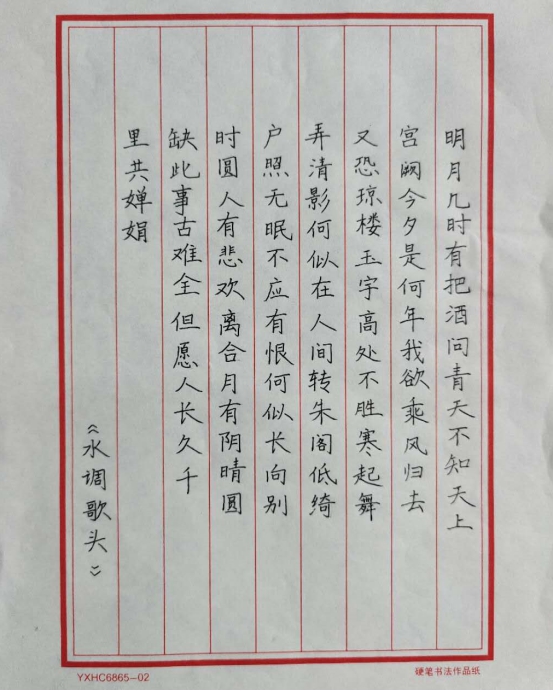 明月几时有把酒问青天不知天上
宫阙今夕是何年我欲乘风归去
又恐琼楼玉宇高处不胜寒起舞
弄清影何似在人间转朱阁低绮
户照无眠不应有恨何似长向别
时圆人有悲欢离合月有阴晴圆
缺此事古难全但愿人长久千
里共婵娟
《水调歌头》
YXHC6865—02
硬笔书法作品纸